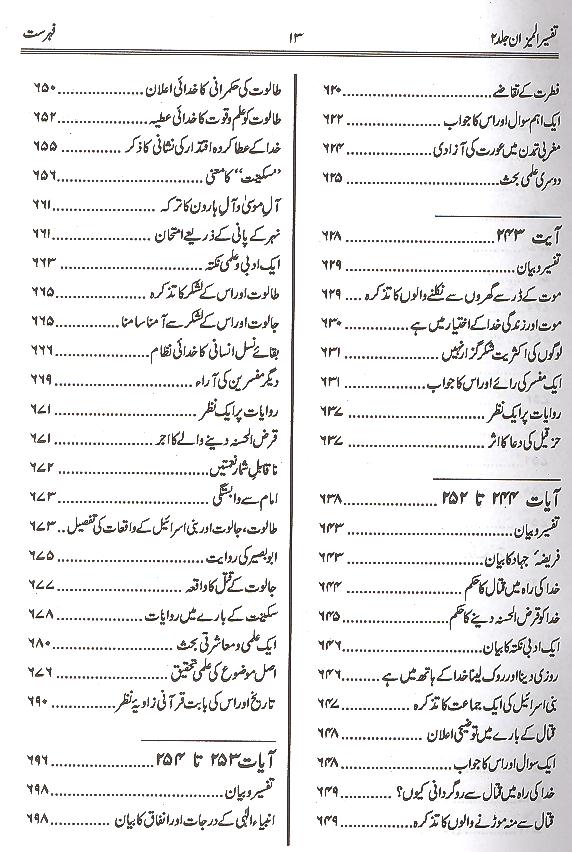 تفسیر المیزان جلد ۲
۱۳
فہرست
فطرت کے تقاضے ۶۲۰
ایک اہم سوال اور اس کا جواب ۶۲۲
مغربی تمدن میں عورت کی آزادی ۶۲۴
دوسری علمی بحث ۶۲۵
آیت ۲۴۳ ۶۲۸
تفسیر و بیان ۶۲۹
موت کے ڈر سے گھروں سے نکلنے والوں کا تذکرہ ۶۲۹
موت اور زندگی خدا کے اختیار میں ہے ۶۳۰
لوگوں کی اکثریت شکر گزار نہیں ۶۳۱
ایک مفسر کی رائے اور اس کا جواب ۶۳۱
روایات پر ایک نظر ۶۳۷
حزقیل کی دعا کا اثر ۶۳۷
آیات ۲۴۴ تا ۲۵۲ ۶۳۸
تفسیر و بیان ۶۴۳
فریضۂ جہاد کا بیان ۶۴۳
خدا کی راہ میں قتال کا حکم ۶۴۴
خدا کو قرض الحسنہ دینے کا حکم ۶۴۵
ایک ادبی نکتہ کا بیان ۶۴۶
روزی دینا اور روک لینا خدا کے ہاتھ میں ہے ۶۴۶
بنی اسرائیل کی ایک جماعت کا تذکرہ ۶۴۷
قتال کے بارے میں توضیحی اعلان ۶۴۸
ایک سوال اور اس کا جواب ۶۴۸
خدا کی راہ میں قتال سے روگردانی کیوں؟ ۶۴۹
قتال سے منہ موڑنے والوں کا تذکرہ ۶۴۹
طالوت کی حکمرانی کا خدائی اعلان ۶۵۰
طالوت کو علم و قوت کا خدائی عطیہ ۶۵۲
خدا کے عطا کردہ اقتدار کی نشانی کا ذکر ۶۵۵
”سکینت“ کا معنی ۶۵۶
آل موسیٰ و آل ہارون کا ترکہ ۶۶۱
نہر کے پانی کے ذریعے امتحان ۶۶۱
ایک ادبی و علمی نکتہ ۶۶۳
طالوت اور اس کے لشکر کا تذکرہ ۶۶۵
جالوت اور اس کے لشکر سے آمنا سامنا ۶۶۵
بقائے نسل انسانی کا خدائی نظام ۶۶۶
دیگر مفسرین کی آراء ۶۶۹
روایات پر ایک نظر ۶۷۱
قرض الحسنہ دینے والے کا اجر ۶۷۱
ناقابل شمار نعمتیں ۶۷۲
امام سے وابستگی ۶۷۳
طالوت، جالوت اور بنی اسرائیل کے واقعات کی تفصیل ۶۷۳
ابو بصیر کی روایت ۶۷۵
جالوت کے قتل کا واقعہ ۶۷۷
سکینت کے بارے میں روایات ۶۷۸
ایک علمی و معاشرتی بحث ۶۸۰
اصل موضوع کی علمی تحقیق ۶۷۶
تاریخ اور اس کی بابت قرآنی زاویۂ نظر ۶۹۰
آیات ۲۵۳ تا ۲۵۴ ۶۹۶
تفسیر و بیان ۶۹۸
انبیاء الٰہی کے درجات اور انفاق کا بیان ۶۹۸